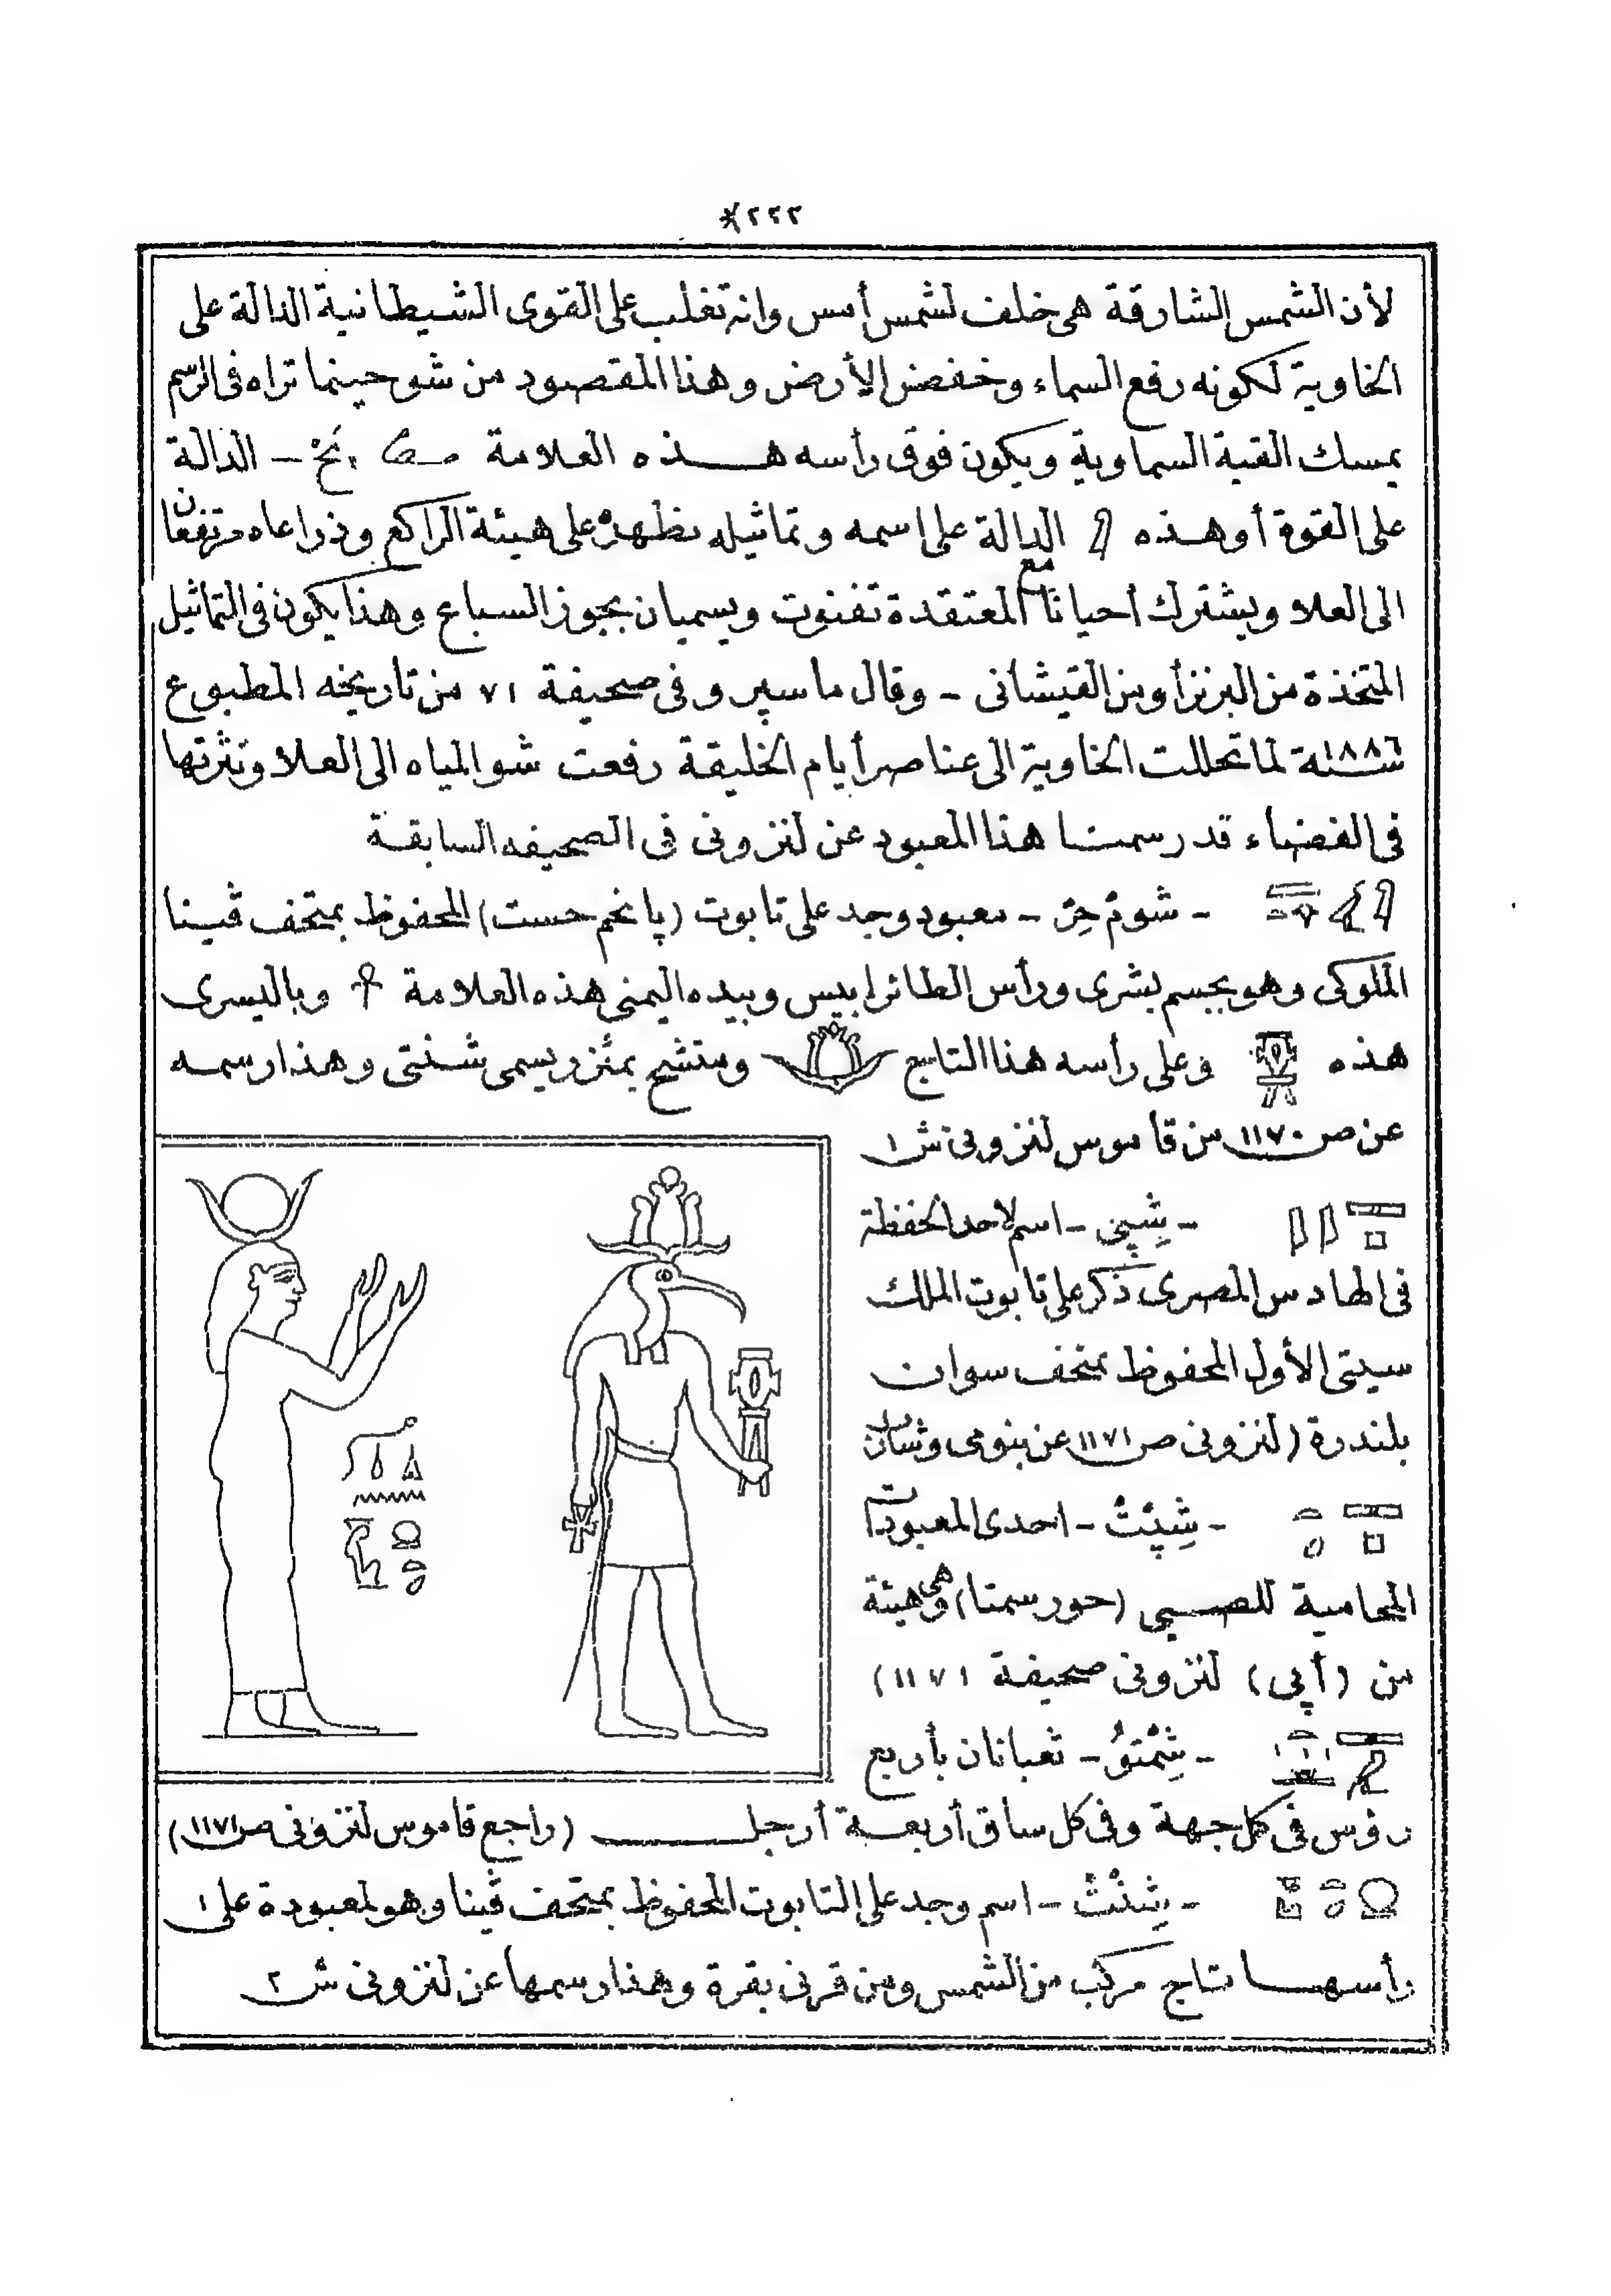 ٢٢٢
لأن الشمس الشارقة هى خلف لشمس أمس وانه تغلب على القوى الشيطانية الدالة على
الخاوية لكونه رفع السماء وخفض الأرض وهذا المقصود من شو حينما تراه فى الرسم
يمسك القبة السماوية ويكون فوق رأسه هذه العلامة نخ - الدالة
على القوة أو هذه الدالة على اسمه وتماثيله تظهره على هيئة الراكع وذراعاه مرتفعان
الى العلا ويشترك أحيانا مع المعتقدة تفنوت ويسميان بجوز السباع وهذا يكون فى التماثيل
المتخذة من البرنز أو من القيشانى - وقال ماسپرو فى صحيفة ٧١ من تاريخه المطبوع
سنة ١٨٨٦ لما تحللت الخاوية الى عناصر أيام الخليقة رفعت شو المياه الى العلا ونثرتها
فى الفضاء قد رسمنا هذا المعبود عن لنزونى فى الصحيفه السابقة
- شومْ حِرْ - معبود وجد على تابوت (پا نخم حست) المحفوظ بمتحف ڤينا
الملوكى وهو بجسم بشرى ورأس الطائر ابيس وبيده اليمنى هذه العلامة ☥ وباليسرى
هذه وعلى رأسه هذا التاج ومتشح بمئزر ويسمى شنتى وهذا رسمه
عن ص ١١٧٠ من قاموس لنزونى ش ١
- شِپِى - اسم لاحد الحفظة
فى الهادس المصرى ذكر على تابوت الملك
سيتى الأول المحفوظ بمتحف سوان
بلندرة (لنزونى ص ١١٧١ عن بنومى وشارن
- شِپِنْتْ - احدى المعبودات
المحامية للصبى (حورسمتا) وهى هيئة
من (أپى) لنزونى صحيفة ١١٧١)
- شِمْتوُ - ثعبانان بأربع
رؤس فى كل جهة وفى كل ساق أربعة أرجل (راجع قاموس لنزونى ص ١١٧١)
- شِنْتْ - اسم وجد على التابوت المحفوظ بمتحف ڤينا وهو لمعبودة على
رأسها تاج مركب من الشمس ومن قرنى بقرة وهذا رسمها عن لنزونى ش ٢